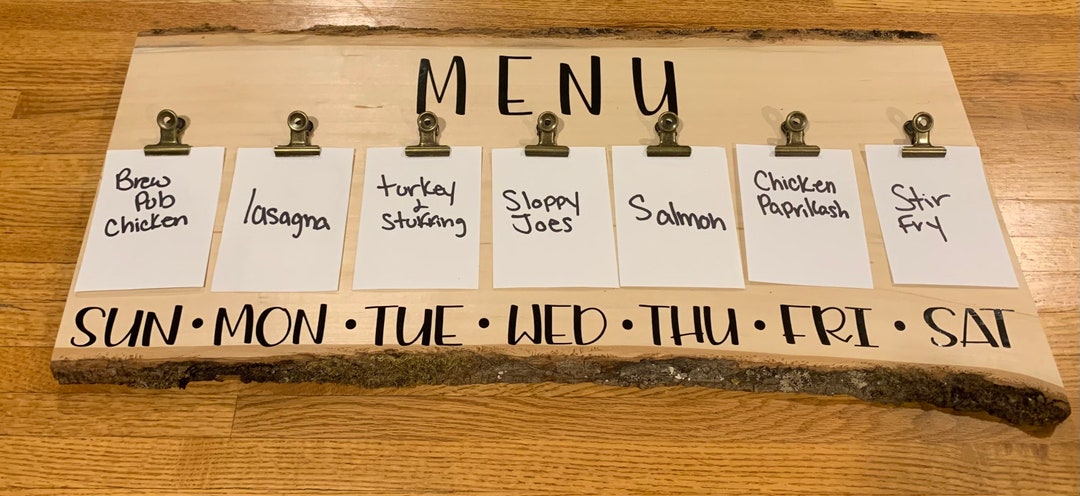 MENU
Brew
Pub
Chicken
lasagna
turkey
&
Stuffing
Sloppy
Joes
Salmon
Chicken
Paprikash
Stir
Fry
SUN • MON • TUE • WED • THU • FRI • SAT